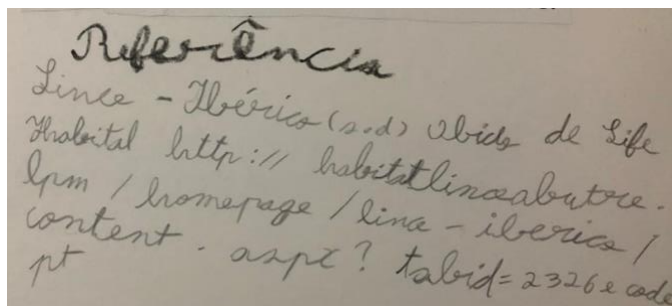 Referência
Lince - Ibérico (s.d) Obido de Life
Habital http:// habitatlinceabutre.
lpm / homepage / lince - iberico /
content . aspx? tabid= 2326 e code
pt